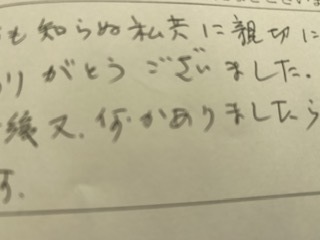 も知らぬ私共に親切に
りがとうございました.
後又、何かありましたら
す.